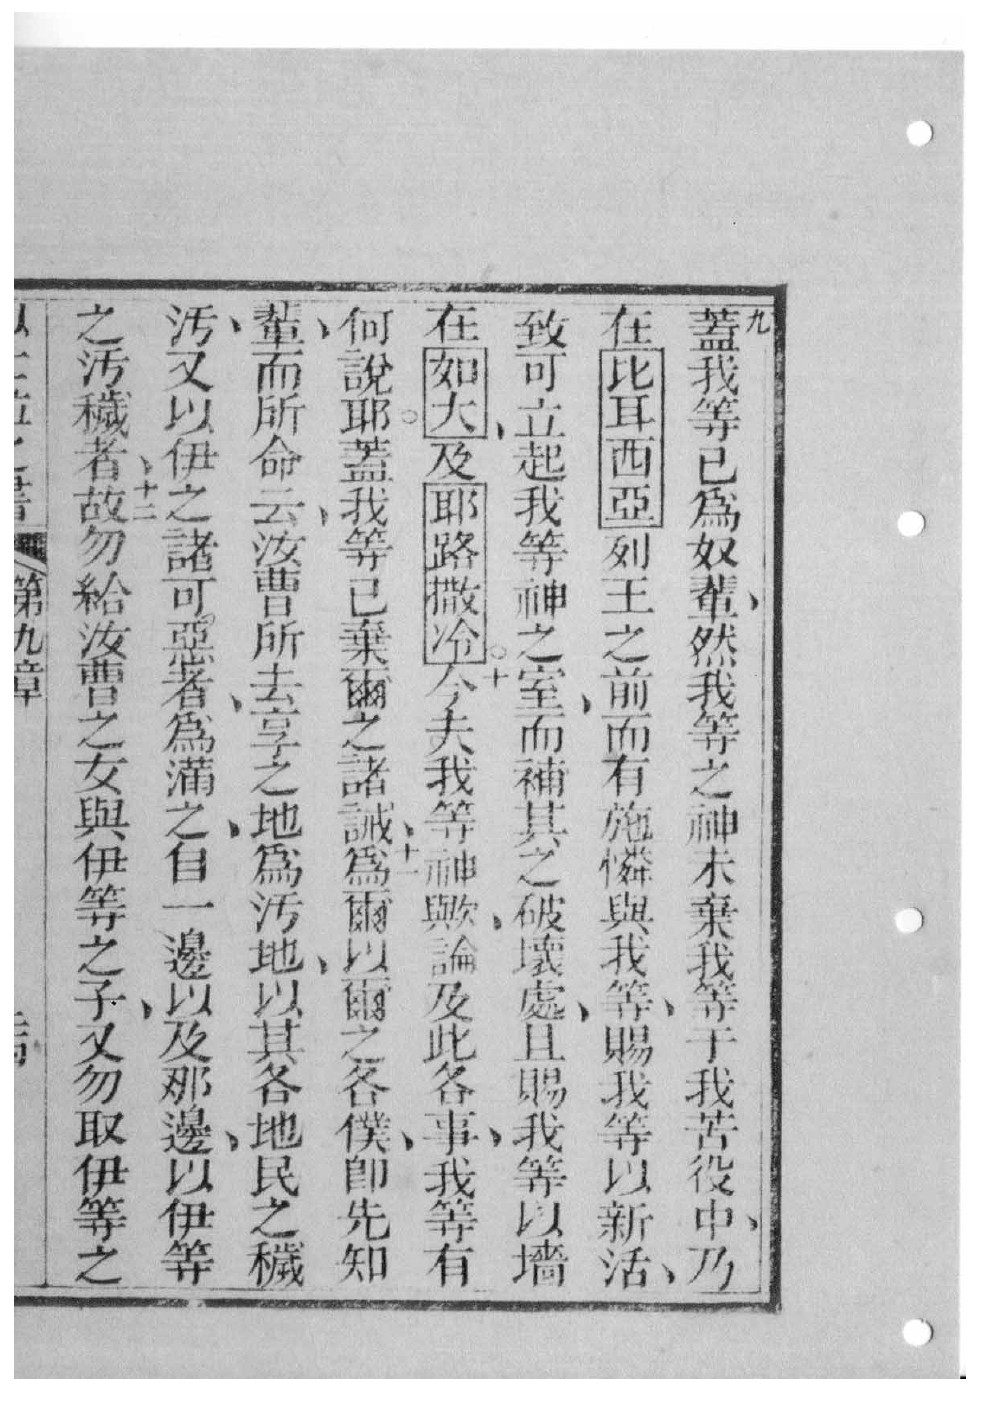 九蓋我等已爲奴輩、然我等之神未棄我等于我苦役中、乃
在比耳西亞列王之前而有施憐與我等、賜我等以新活、
致可立起我等神之室、而補其之破壞處、且賜我等以墻
在如大、及耶路撒冷。十今夫我等神歟、論及此各事、我等有
何說耶。蓋我等已棄爾之諸誡、十一爲爾以爾之各僕、即先知
輩、而所命云、汝曹所去享之地爲汚地、以其各地民之穢
汚、又以伊之諸可惡者、爲滿之、自一邊以及那邊、以伊等
之汚穢者、十二故勿給汝曹之女與伊等之子、又勿取伊等之
第九章